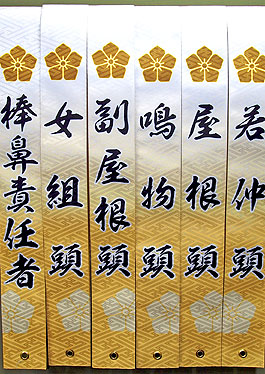 若仲頭
屋根頭
鳴物頭
副屋根頭
女組頭
棒鼻責任者